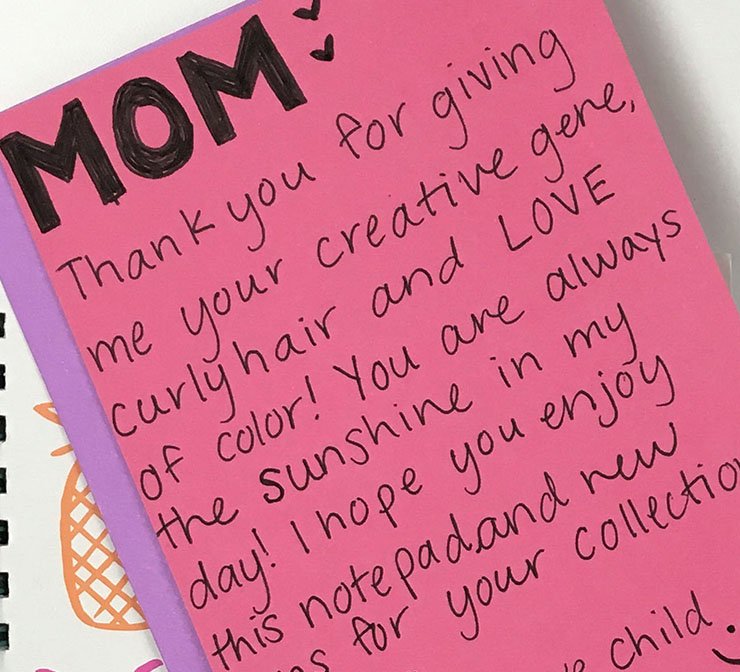 MOM
Thank you for giving
me your creative gene,
curly hair and LOVE
of color! You are always
the sunshine in my
day! I hope you enjoy
this notepad and new
for your collection
child